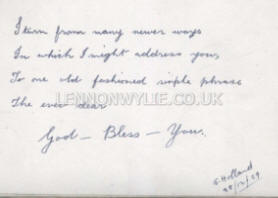 I turn from many newer ways
In which I might address you,
To one old fashioned simple phrase
The ever dear
LENNONWYLIE.CO.UK
God - Bless - You.
Holland